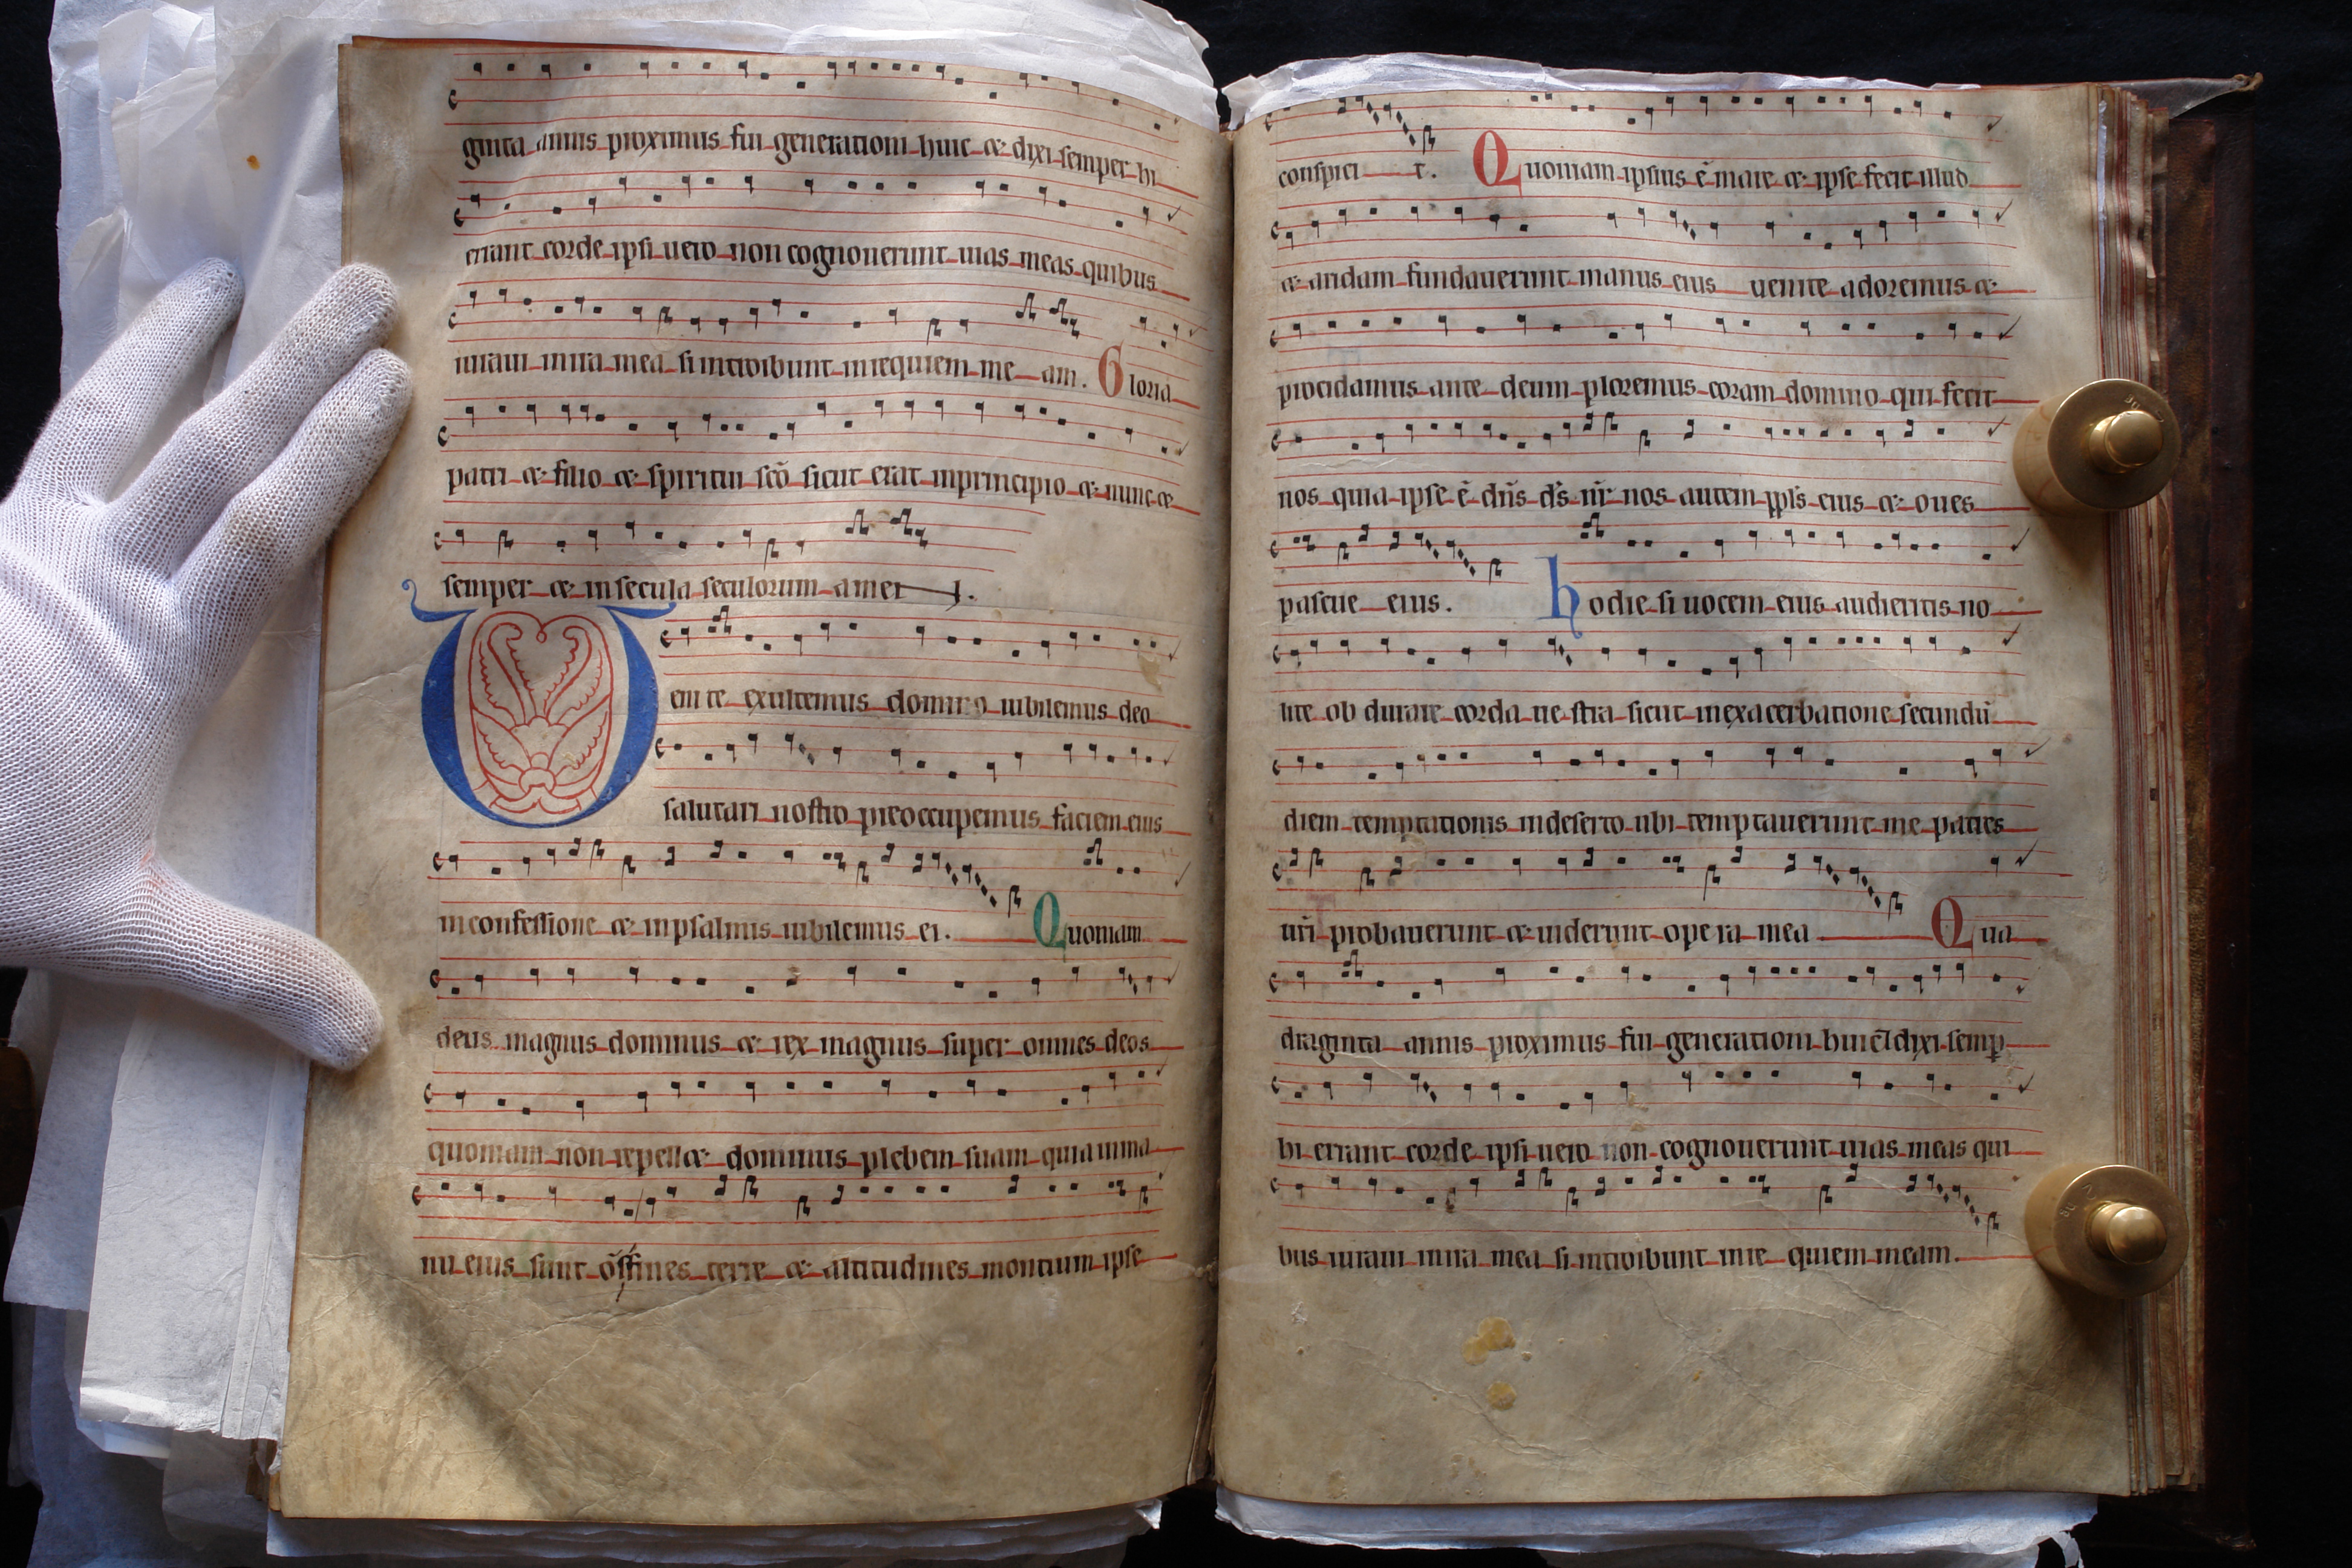 ginta annis proximus fui generationi huic & dixi semper hi
errant corde ipsi uero non cognouerunt uias meas quibus
iuraui in ira mea si introibunt in requiem me am. Gloria
patri & filio & spiritui sc̄o sicut erat inprincipio & nunc &
semper & in secula seculorum amen.
Venite exultemus domino iubilemus deo
salutari nostro preoccupemus faciem eius
inconfessione & inpsalmis iubilemus ei. Quoniam
deus magnus dominus & rex magnus super omnes deos
quoniam non repell& dominus plebem suam quia inma
nu eius sunt om̄s fines terre & altitudines montium ipse
conspici t. Quoniam ipsius ē mare & ipse fecit illud
& aridam fundauerunt manus eius uenite adoremus &
procidamus ante deum ploremus coram domino qui fecit
nos quia ipse ē dn̄s d̄s nr̄ nos autem ppl̄s eius & oues
pascue eius. hodie si uocem eius audieritis no
lite ob durare corda ue stra sicut inexacerbatione secundū
diem temptationis indeserto ubi temptauerunt me patres
ur̄i probauerunt & uiderunt ope ra mea Qua
draginta annis proximus fui generationi huic & dixi semp̄
hi errant corde ipsi uero non cognouerunt uias meas qui
bus iuraui inira mea si introibunt inre quiem meam.